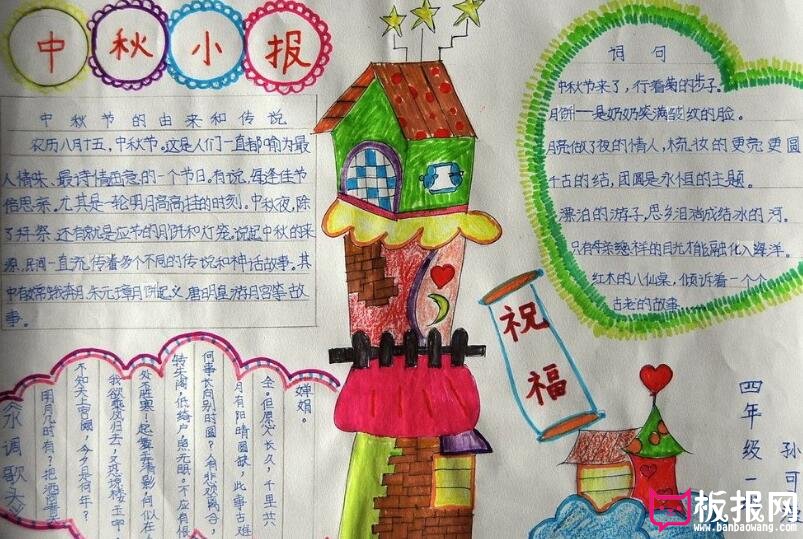 中秋小报
中秋节的由来和传说
农历八月十五，中秋节。这是人们一直都喻为最
人情味、最诗情画意的一个节日。有说，每逢佳节
倍思亲。尤其是一轮明月高高挂的时刻。中秋夜，除
了拜祭，还有就是应节的月饼和灯笼。说起中秋的来
源，民间一直流传着多个不同的传说和神话故事。其
中有嫦娥奔月、朱元璋月饼起义、唐明皇游月宫等故
事。
词句
中秋节来了，行着菊的步子。
月饼一是奶奶笑满皱纹的脸。
月亮做了夜的情人，梳妆的更亮更圆
千古的结，团圆是永恒的主题。
漂泊的游子，思乡泪淌成结冰的河。
只有母亲慈祥的目光才能融化入海洋。
红木的八仙桌，倾诉着一个个
古老的故事
祝福
婵娟。
全。但愿人长久，千里共
月有阴晴圆缺，此事古难
何事长向别时圆？人有悲欢离合，
转朱阁，低绮户，照无眠。不应有恨
处不胜寒！起舞弄清影，何似在
我欲乘风归去，又恐琼楼玉宇，
不知天上宫阙，今夕是何年？
明月几时有？把酒
水调歌头
四年级一
孙可
板报网
www.banbaowang.com